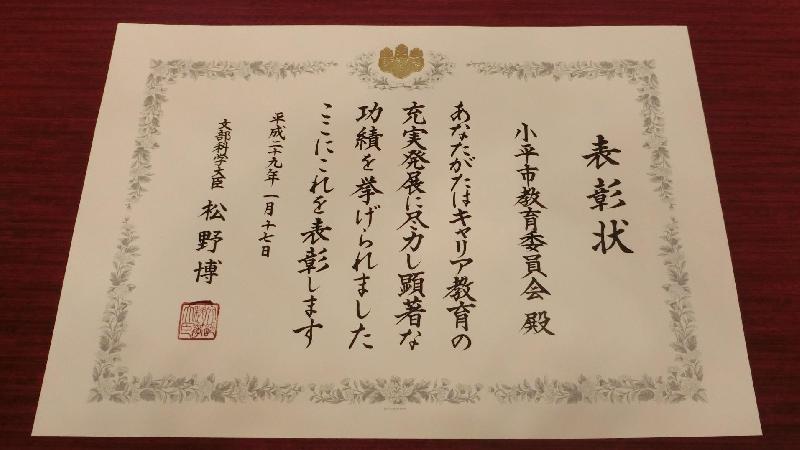 表彰状
小平市教育委員会 殿
あなたがたはキャリア教育の
充実発展に尽力し顕著な
功績を挙げられました
ここにこれを表彰します
平成二十九年一月十七日
文部科学大臣 松野博